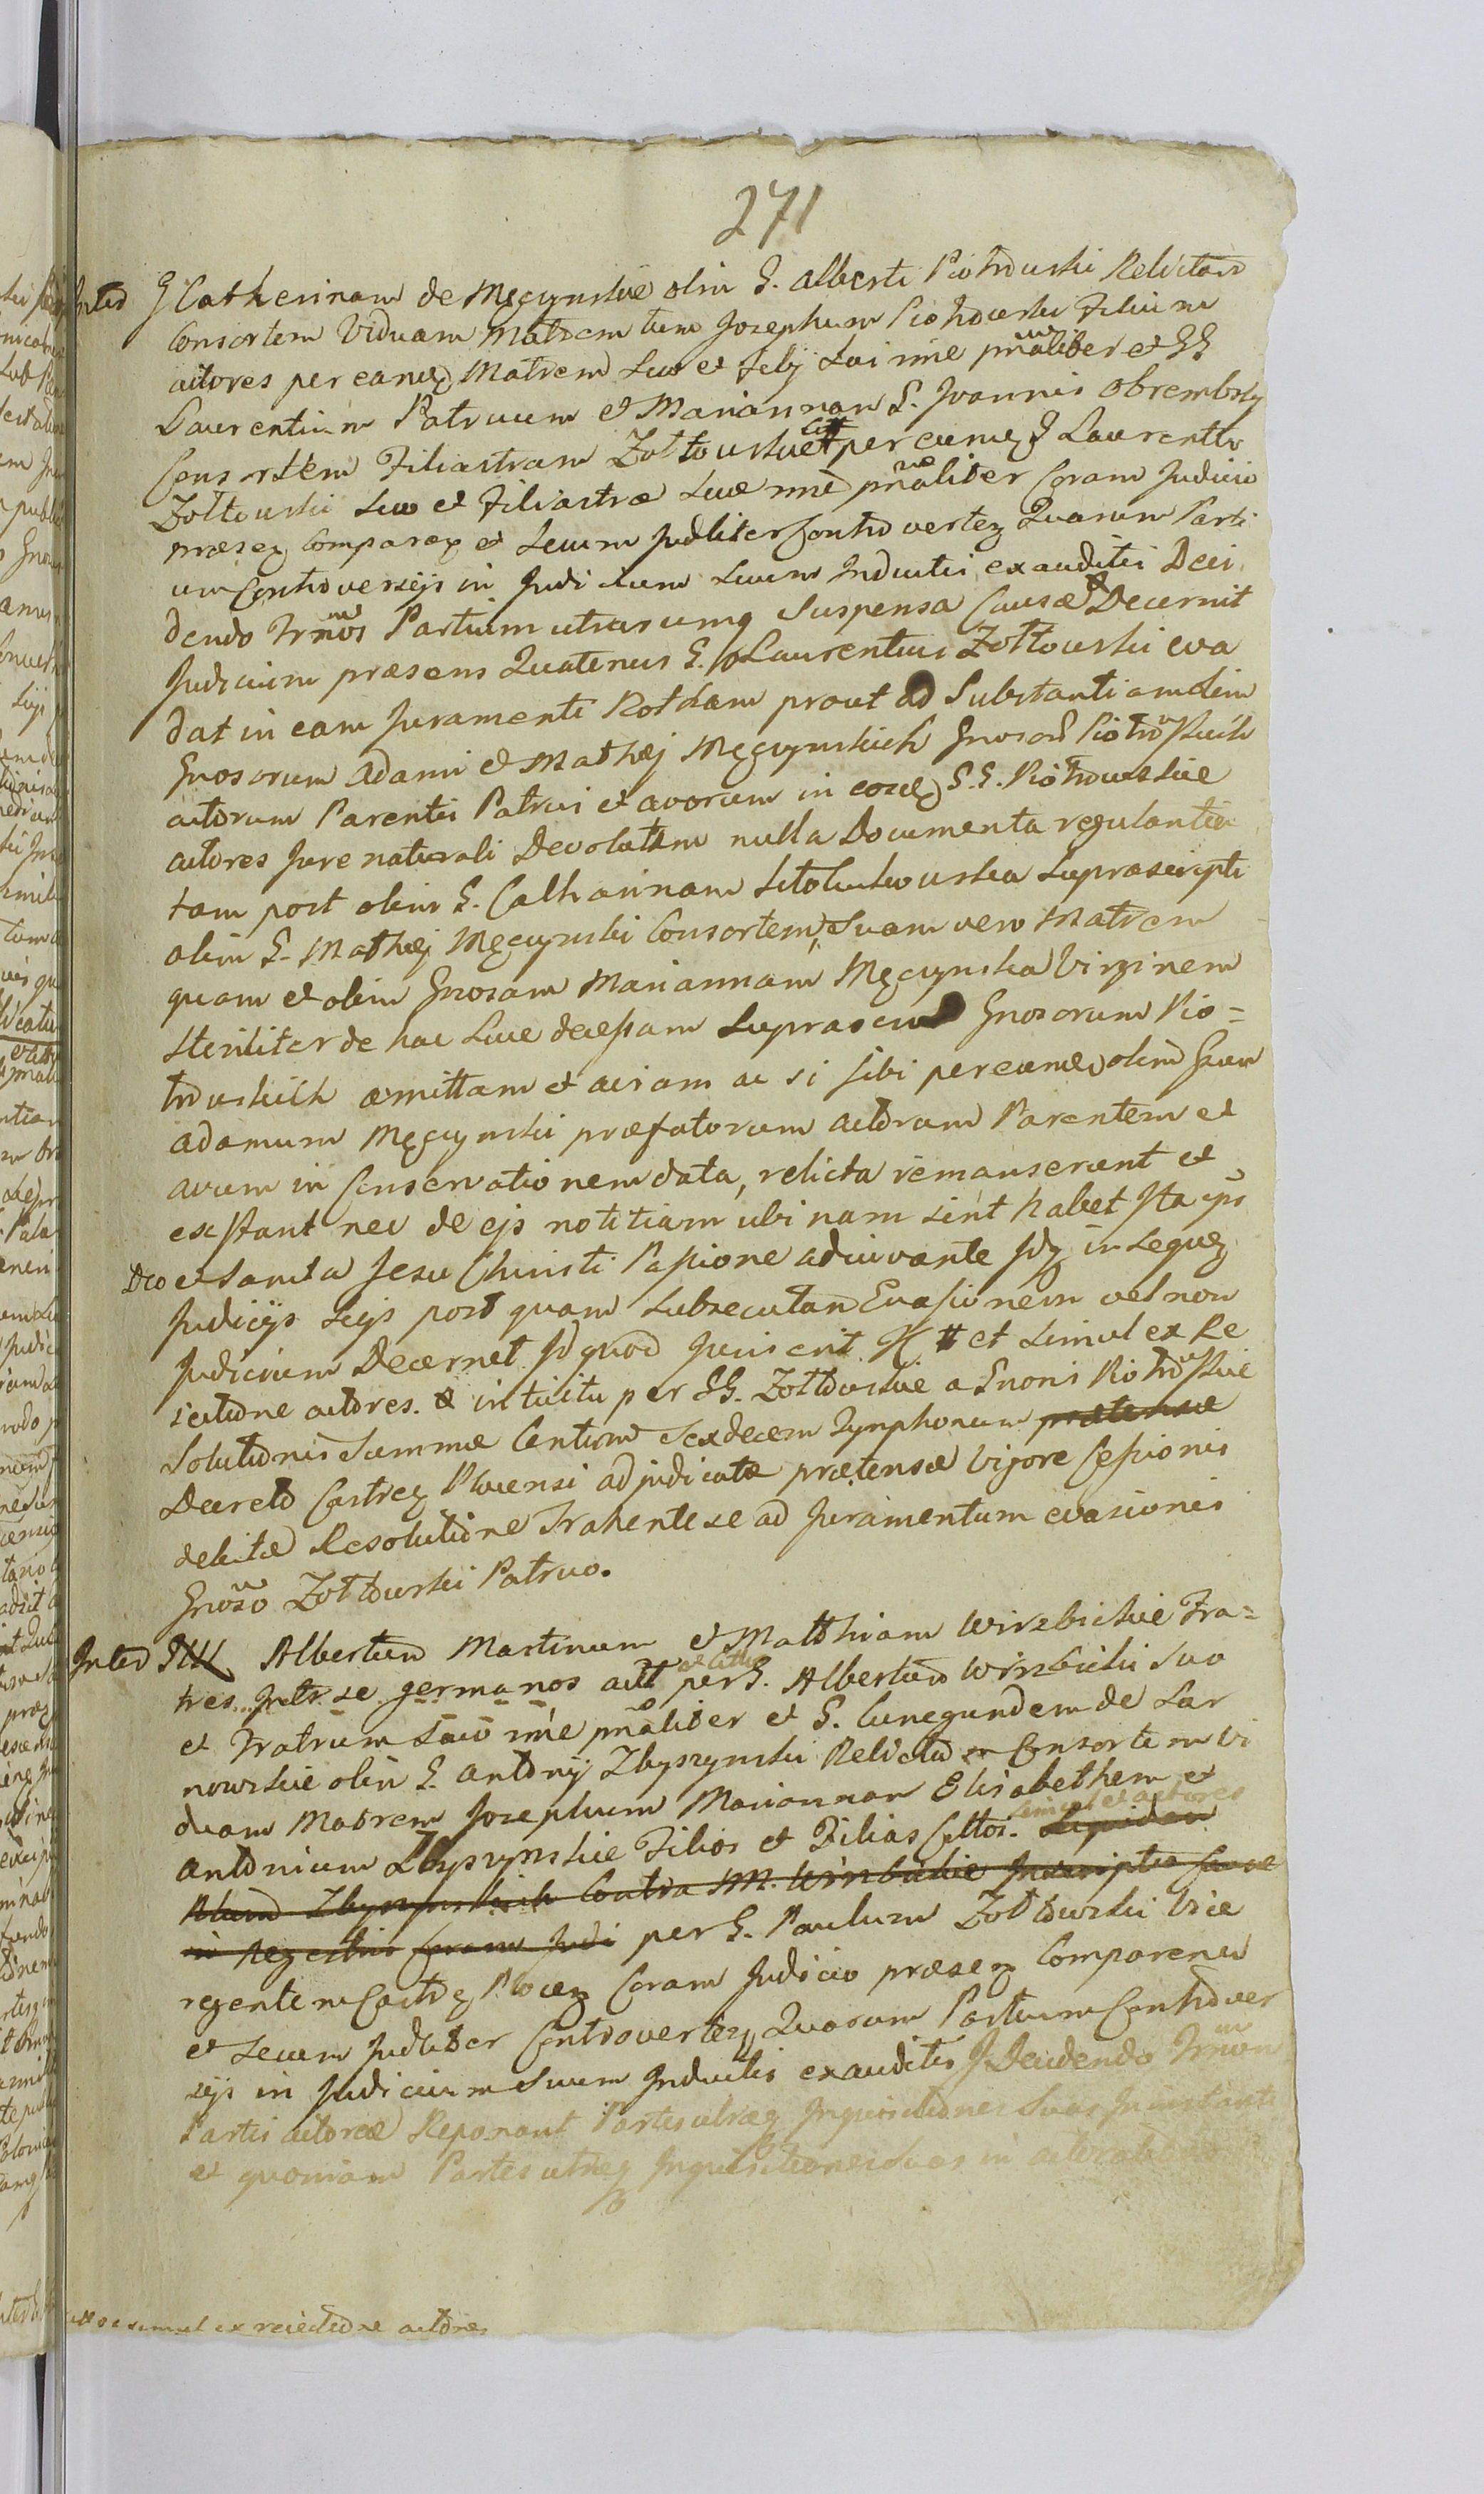 271
Inter G Catherinam de Męcynskie olim G. Alberti Piotrowski Relictam
Consortem Viduam Matrem tum Josephum Piotrowski Filium
actores per eandq Matrem suo et filij sui nne pnaliter et GG
Laurentium Patruum et Mariannam G. Joannis Obrembski
Consortem Filiastram Zołtowskie Citt per eumq G Laurentiu
Zołtowski suo et Filiastræ suæ nne pnaliter Coram Judicio
præsez Comparez et secum Judliter Controvertez Quarum Parti
um Controversijs in Judicium suum Inductis exauditis Deci
dendo Trnos Partium utrarumq Suspensa Causæ Decernit
Judicium præsens Quatenus G. Laurentius Zołtowski eva
dat in eam Juramenti Rotham prout ad Substantiam
Gnosorum Adami et Mathæj Męcynskich Gnosor Piotrowskich
actorum Parentis Patrui et avorum in eosdq G.G. Piotrowskie
actores Jure naturali Devolutam nulla Documenta regulantia
tam post olim G. Catharinam suprascripti
olim G. Mathæj Męcynski Consortem, Suam vero Matrem
quam et olim Gnosam Mariannam Męcynska Virginem
steriliter de hac Luce decessam Gnosorum Pio=
trowskich amittam et aviam ac si sibi per eundq olim Gnosu
Adamum Męcynski præfatorum actorum Parentem et
avum in Conservationem data, relicta remanserant et
exstant nec de ejs notitiam ubi nam sint habet Ita ejus
Deo et Sancta Jesu Christi Passione adiuvante Idq in sequez
Judicijs sijs post quam subsecutam Evasionem vel non
Judicium Decernet Id quod Juris erit # et simul ex Re
iectione actores. intuitu per GG. Zołtowskie a Gnosis Piotrowskie
Solutionis Summæ Centum Sexdecem Zynphonum prætensæ
Decreto Castrez Plocensi adjudicatæ prætensæ Vigore Cessionis
debitæ Resolutione Trahente se ad Juramentum evasionis
Gnoso Zołtowski Patruo.
Inter Albertum Martinum et Matthiam Wirzbickie Fra=
tres Inter se germanos act et citt per G. Albertum Wirzbicki suo
et Fratrum suo nne pnaliter et G. Cunegundem de Sar
nowskie olim G. Antonij Zbyszynski Relictam Consortem Vi
duam Matrem Josephum Mariannam Elisabethem et
simul et actores
Antonium Zbyszynskie Filios et Filias Cittos.
Zbyszynskich Contra MM. Wirzbickie Inscriptis Causæ
in Regestris Coram Judi per G. Paulum Zołtowski Vice
regentem Castrez Plocez Coram Judicio præsez Comparenes
et secum Judliter Controvertez Quorum Partium Controver
sijs in Judicium Suum Inductis exauditis Decidendo Trnon
Partis actoræ Reponant Partes utræq Inquisitiones Suas In instanti
et quoniam Partes utræq Inquisitiones Suas in
simul ex reiectione actores